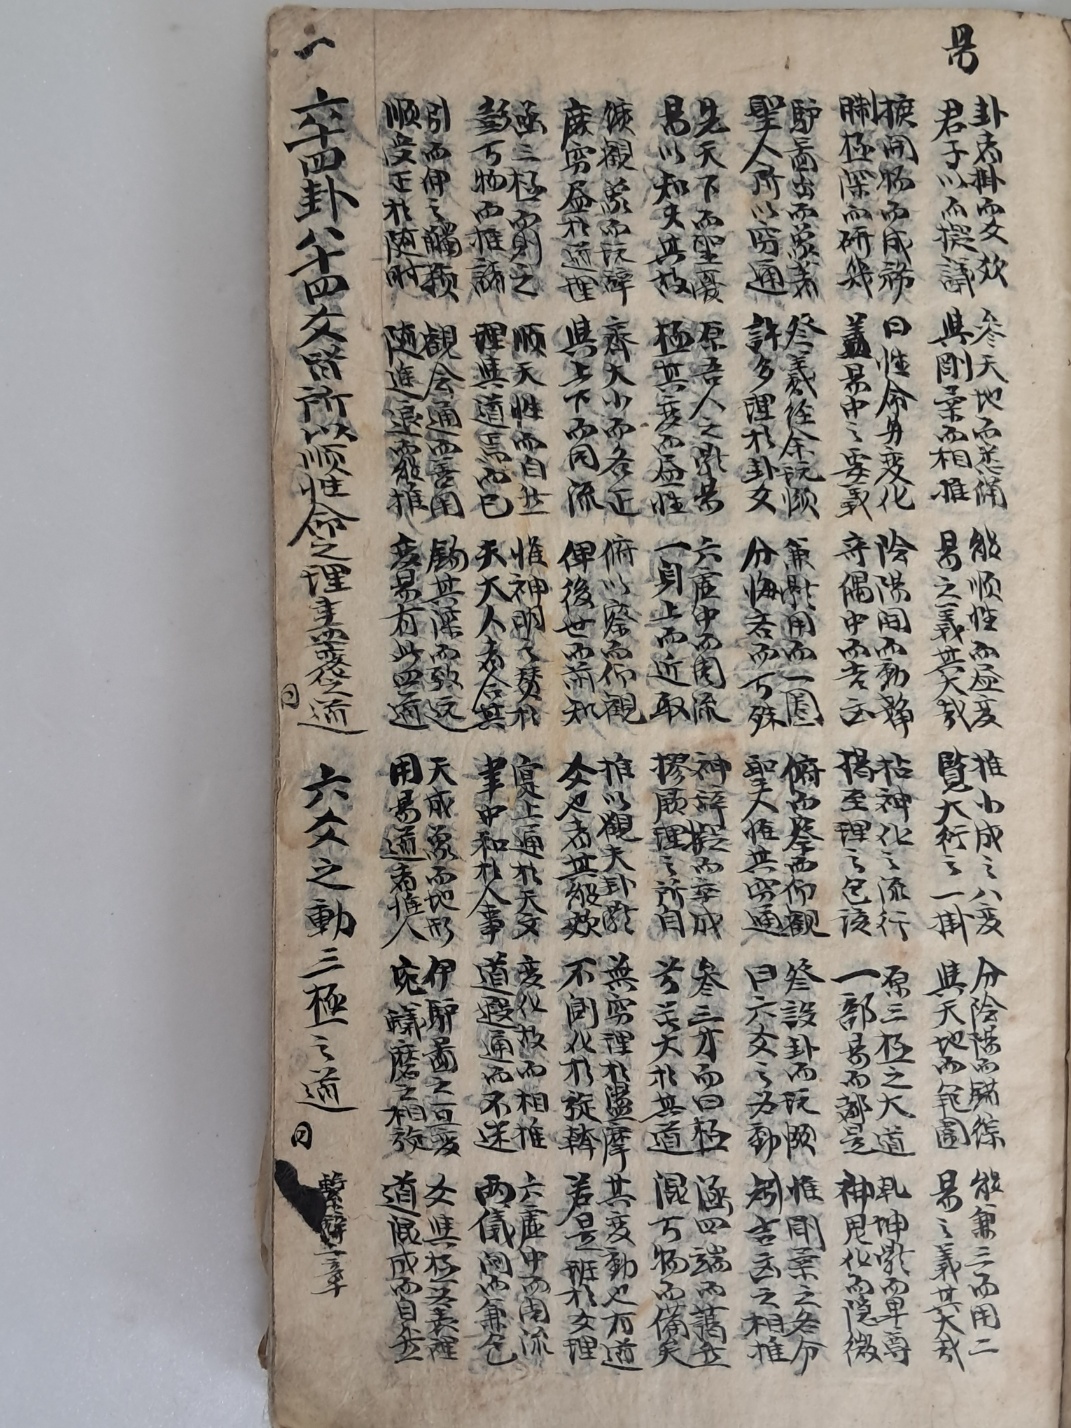 易
卦者掛而爻效 參天地而悉備 能順性而盡變 推小成之八變 分陰陽而錯綜 能兼三而用二
君子以而擬議 與剛柔而相推 易之義其大哉 覽大衍之一掛 與天地而範圍 易之義其大哉
開物而成務 曰性命與變化 陰陽間而動靜 神化之流行 原三極之大道 乾坤影而卑尊
極深而研幾 蓋易中之要義 奇偶中而吉凶 揭至理之包該 一部易而都是 神鬼化而隱微
啚出而象著 叅羲經余玩頤 兼影用而一 俯而察而仰觀 叅設卦而玩頤 惟剛柔之各分
聖人所以窮通 許多理於卦爻 分悔吝而万殊 聖人惟其窮通 曰六爻之為動 判吉凶之相推
先天下而聖憂 原吾人之影易 六虛中而周流 神辭擬而率成 叅三才而曰極 涵四端而藹然
易以知夫其故 極其變而盡性 一身上而近取 厥理之所自 大於其道 混万物而備矣
俯觀象而玩辭 齊大小而各正 俯以察而仰觀 推以觀夫卦影 無窮理於盪摩 其變動也有道
庶窮盡於道理 與上下而同流 俾後世而前知 爻也者其級效 不測化於旋斡 若是班於文理
函三極而則之 順天性而自然 惟神明之贊於 寔上通於天文 變化故而相推 六虛中而周流
彰万物而推 理與道焉而已 夫大人者合其 聿中和於人事 道遐通而不迷 兩儀間而兼包
引而伸之觸類 觀會通而善用 鉤其深而致遠 天成象而地形 伊啚之亘變 爻與極互表裡
順受正於隨時 隨進退而能推 變易有此四道 用易道者惟人 蟻磨之相旋 道混成而自然
一 六十四卦八十四爻皆所以順性命之理盡變之道 同 六爻之動三極之道 同 繫辭二章